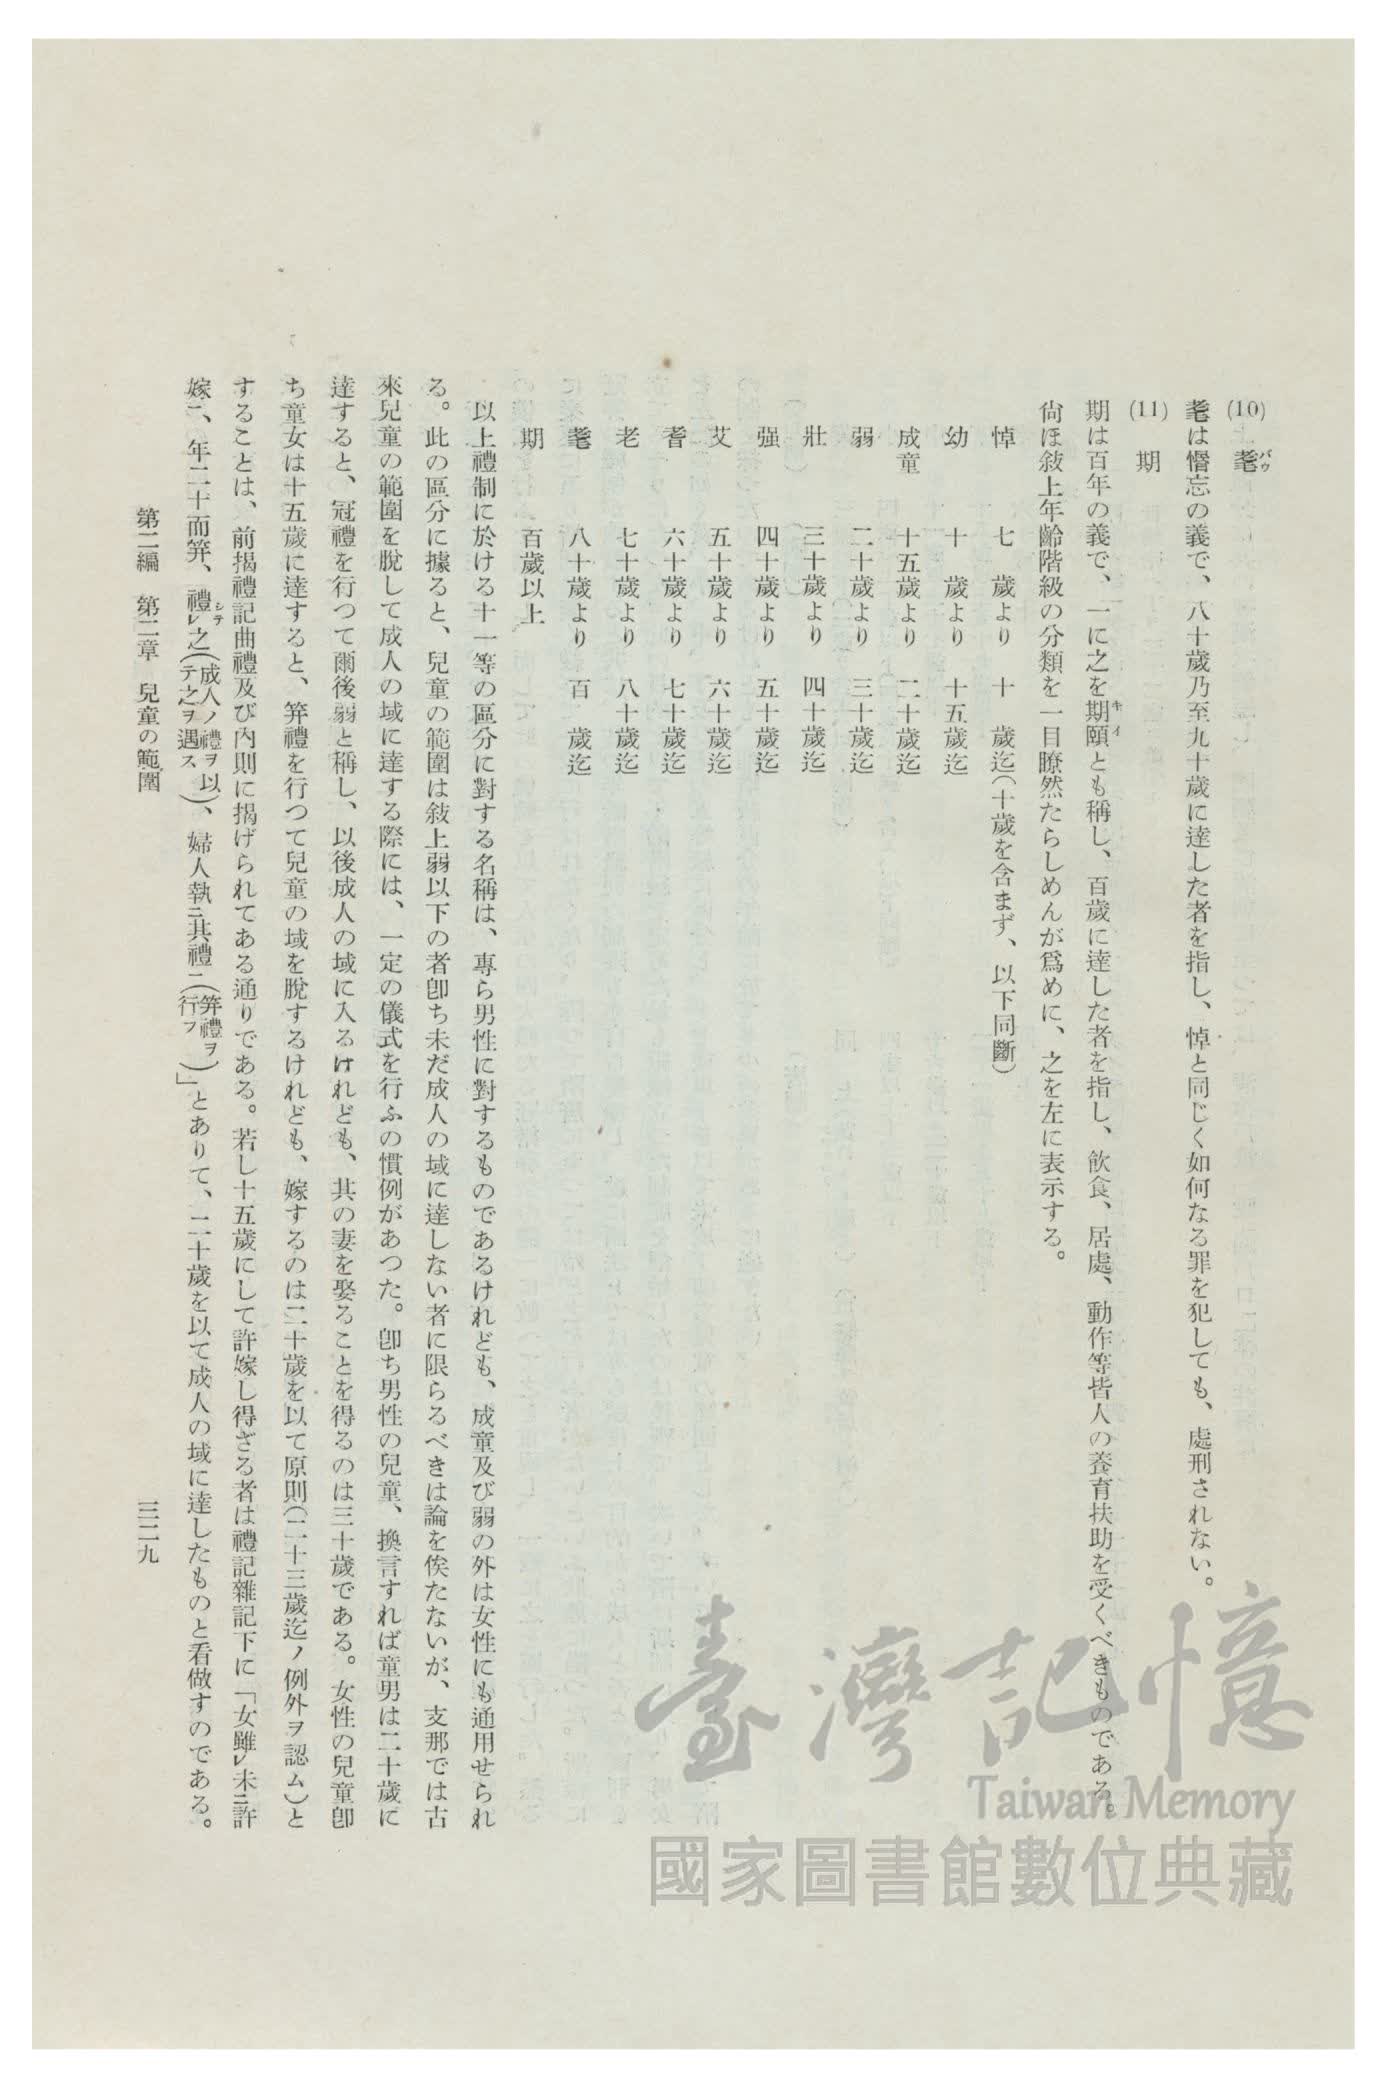 (10) 耄バウ
耄は惛忘の義で、八十歲乃至九十歲に達した者を指し、悼と同じく如何なる罪を犯しても、處刑されない。
(11) 期
期は百年の義で、一に之を期頤キイとも稱し、百歲に達した者を指し、飮食、居處、動作等皆人の養育扶助を受くべきものである。
尙ほ敍上年齡階級の分類を一目瞭然たらしめんが爲めに、之を左に表示する。
悼 七 歲より 十 歲迄(十歲を含まず、以下同斷)
幼 十 歲より 十五歲迄
成童 十五歲より 二十歲迄
弱 二十歲より 三十歲迄
壯 三十歲より 四十歲迄
强 四十歲より 五十歲迄
艾 五十歲より 六十歲迄
耆 六十歲より 七十歲迄
老 七十歲より 八十歲迄
耄 八十歲より 百 歲迄
期 百歲以上
以上禮制に於ける十一等の區分に對する名稱は、專ら男性に對するものであるけれども、成童及び弱の外は女性にも通用せられ
る。此の區分に據ると、兒童の範圍は敍上弱以下の者卽ち未だ成人の域に達しない者に限らるべきは論を俟たないが、支那では古
來兒童の範圍を脫して成人の域に達する際には、一定の儀式を行ふの慣例があつた。卽ち男性の兒童、換言すれば童男は二十歲に
達すると、冠禮を行つて爾後弱と稱し、以後成人の域に入るけれども、其の妻を娶ることを得るのは三十歲である。女性の兒童卽
ち童女は十五歲に達すると、笄禮を行つて兒童の域を脫するけれども、嫁するのは二十歲を以て原則(二十三歲迄ノ例外ヲ認ム)と
することは、前揭禮記曲禮及び內則に揭げられてある通りである。若し十五歲にして許嫁し得ざる者は禮記雜記下に「女雖レ未ニ許
嫁一、年二十而笄、禮シテレ之(成人ノ禮ヲ以テ之ヲ遇ス)、婦人執ニ其禮一(笄禮ヲ行フ)」とありて、二十歲を以て成人の域に達したものと看做すのである。
第二編 第二章 兒童の範圍 三二九
臺灣記憶
Taiwan Memory
國家圖書館數位典藏